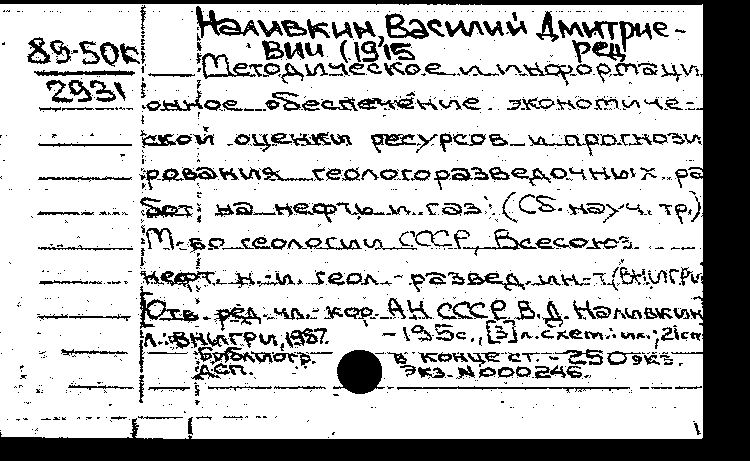 Наливкин, Василий Дмитрие-
вич (1915 ред
89-50к
2931
Методическое и информаци
онное обеспечение экономиче-
ской оценки ресурсов и прогнози
рования геологоразведочных ра
бот на нефть и газ: (Сб. науч. тр.)
М-во геологии СССР, Всесоюз.
нефт. н.-и. геол.-развед. ин-т (ВНИГРИ
[Отв. ред. чл.-кор. АН СССР В.Д. Наливкин]
Л.: ВНИГРИ, 1987. - 195с., [3] л. схем.: ил.; 21см
Библиогр. в конце ст. - 250 экз.
ДСП. Экз. N 000246.